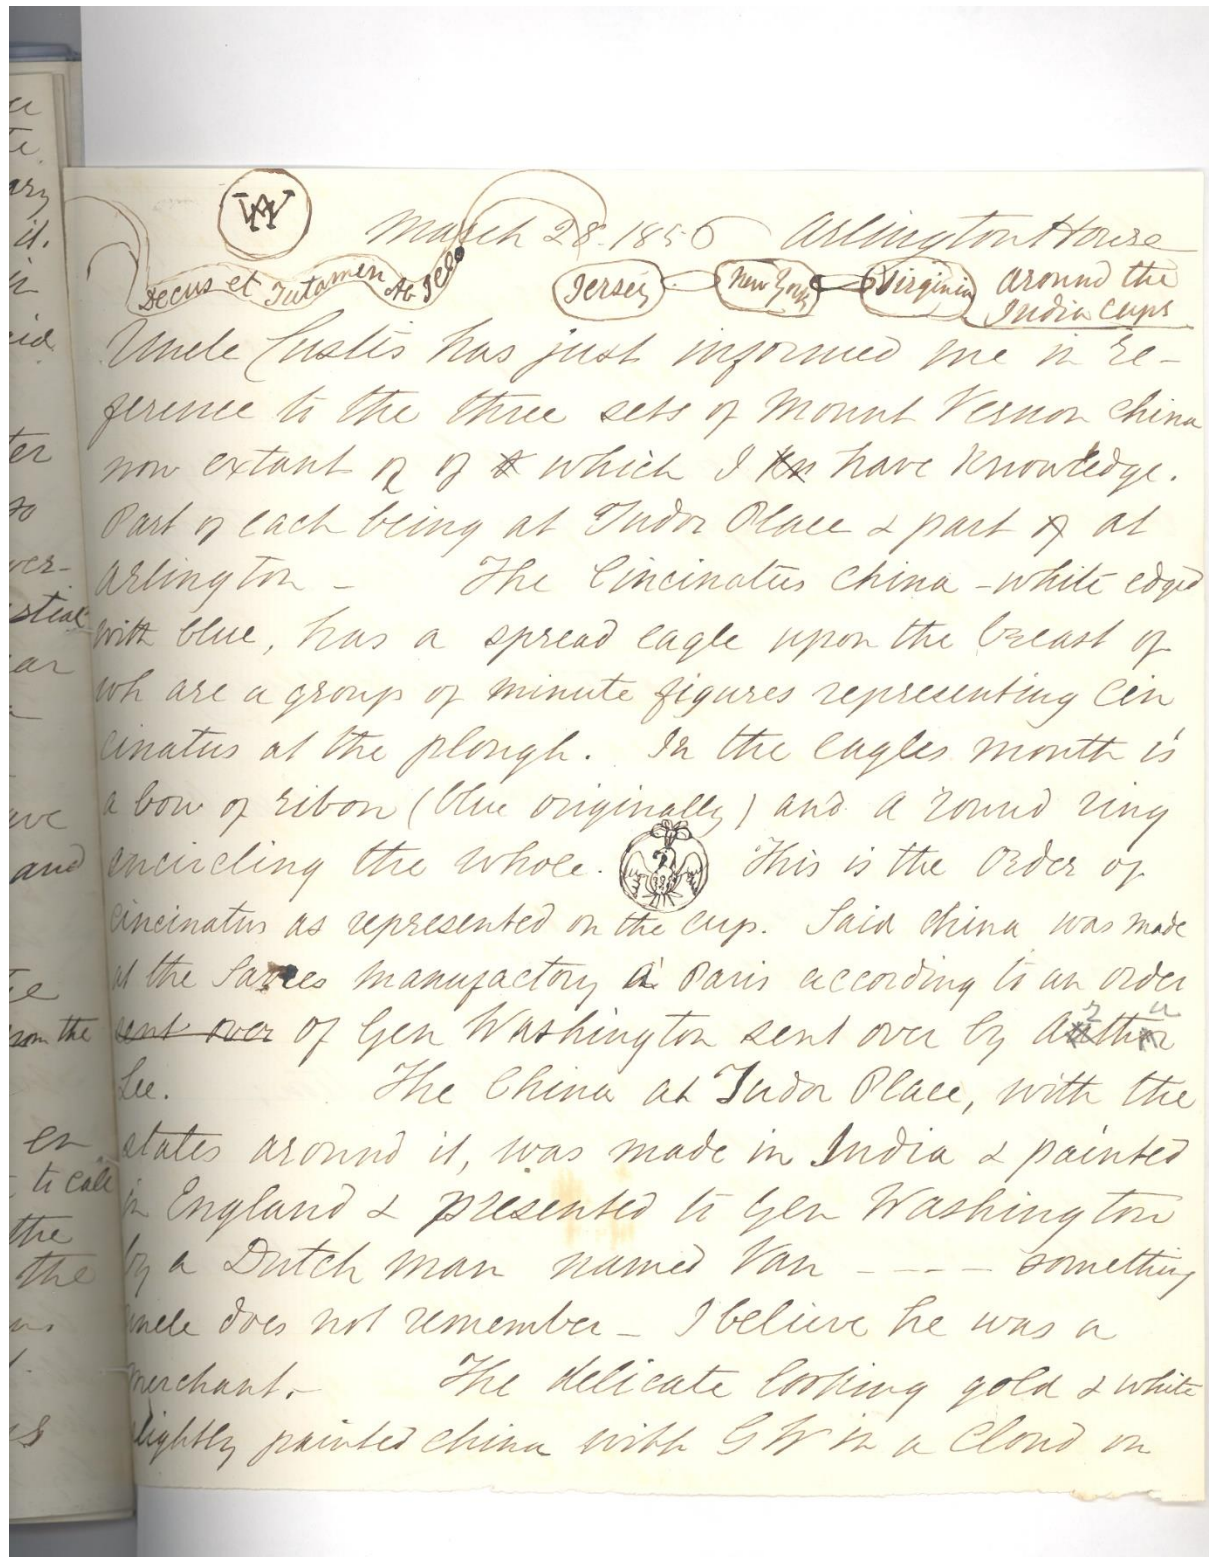 March 28. 1856 Arlington House
Decus et Tutamen Ab Illo
Jersey New York Virginia around the
India cups
Uncle Custis has just informed me in re-
ference to the three sets of Mount Vernon china
now extant of of which I have knowledge.
Part of each being at Tudor Place & part at
Arlington - The Cincinatus china - white edged
with blue, has a spread eagle upon the breast of
wh are a group of minute figures representing Cin
cinatus at the plough. In the eagles mouth is
a bow of ribon (blue originally) and a round ring
encircling the whole. This is the Order of
Cincinatus as represented on the cup. Said china was made
at the manufactory Paris according to an order
sent over of Gen Washington sent over by Arthur
Lee. The China at Tudor Place, with the
states around it, was made in India & painted
in England & presented to Gen Washington
by a Dutch man named Van ---- something
Uncle does not remember - I believe he was a
merchant. - The delicate looking gold & white
slightly painted china with G W in a cloud on
ary
it.
ter
so
ver-
ar
ave
and
from the
en
to call
the
the